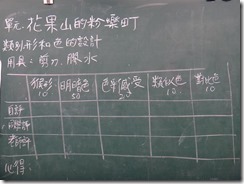 單元:花果山的粉樂町
類別:形和色的設計
用具:剪刀、膠水
猴形 明暗色 色彩感受 類似色 對比色
10 50 20 10 10
自評
老師評
心得: